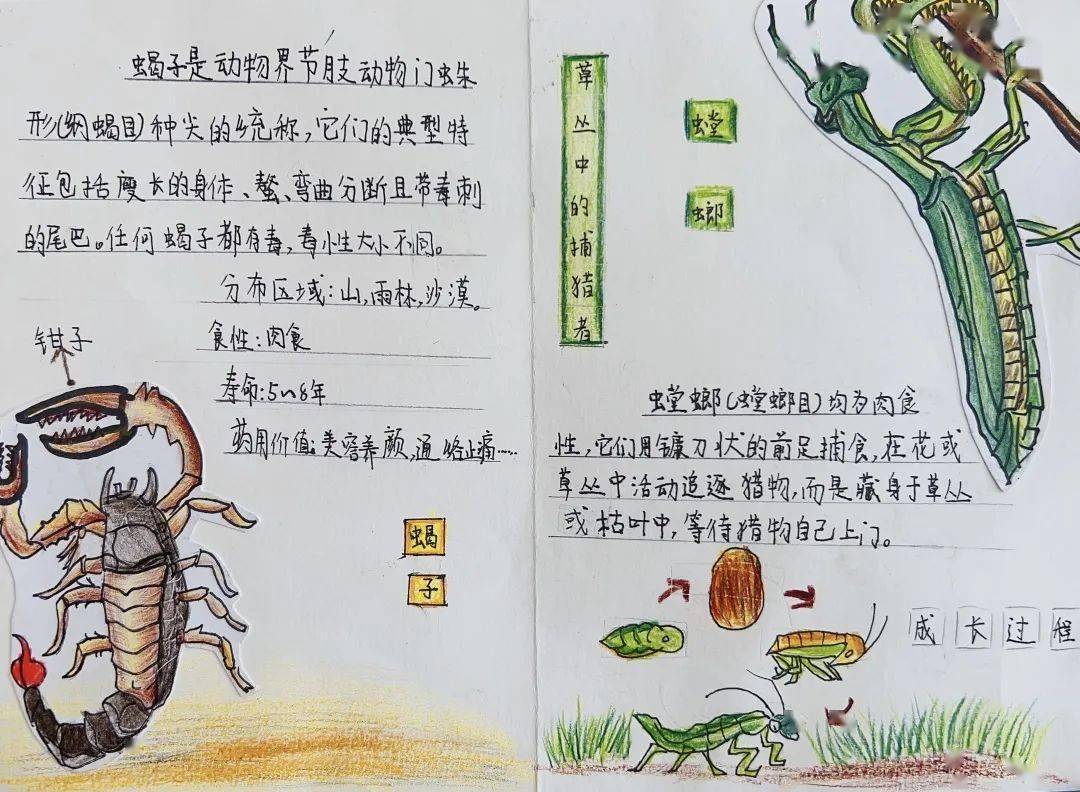 蝎子是动物界节肢动物门蛛
形(纲蝎目)种尖的统称,它们的典型特
征包括瘦长的身体、螯、弯曲分断且带毒刺
的尾巴。任何蝎子都有毒,毒性大小不同。
分布区域:山,雨林,沙漠。
食性:肉食
寿命:5~8年
药用价值:美容养颜,通络止痛……
钳子
蝎
子
草丛中的捕猎者
螳
螂
螳螂(螳螂目)均为肉食
性,它们用镰刀状的前足捕食,在花或
草丛中活动追逐猎物,而是藏身于草丛
或枯叶中,等待猎物自己上门。
成长过程